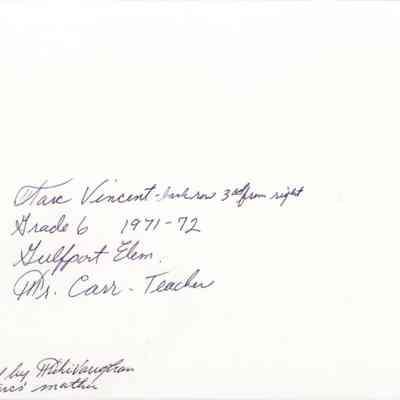 Marc Vincent - back row 3rd from right
Grade 6 1971-72
Gulfport Elem.
Mr. Carr - Teacher
by Vaughan
mother